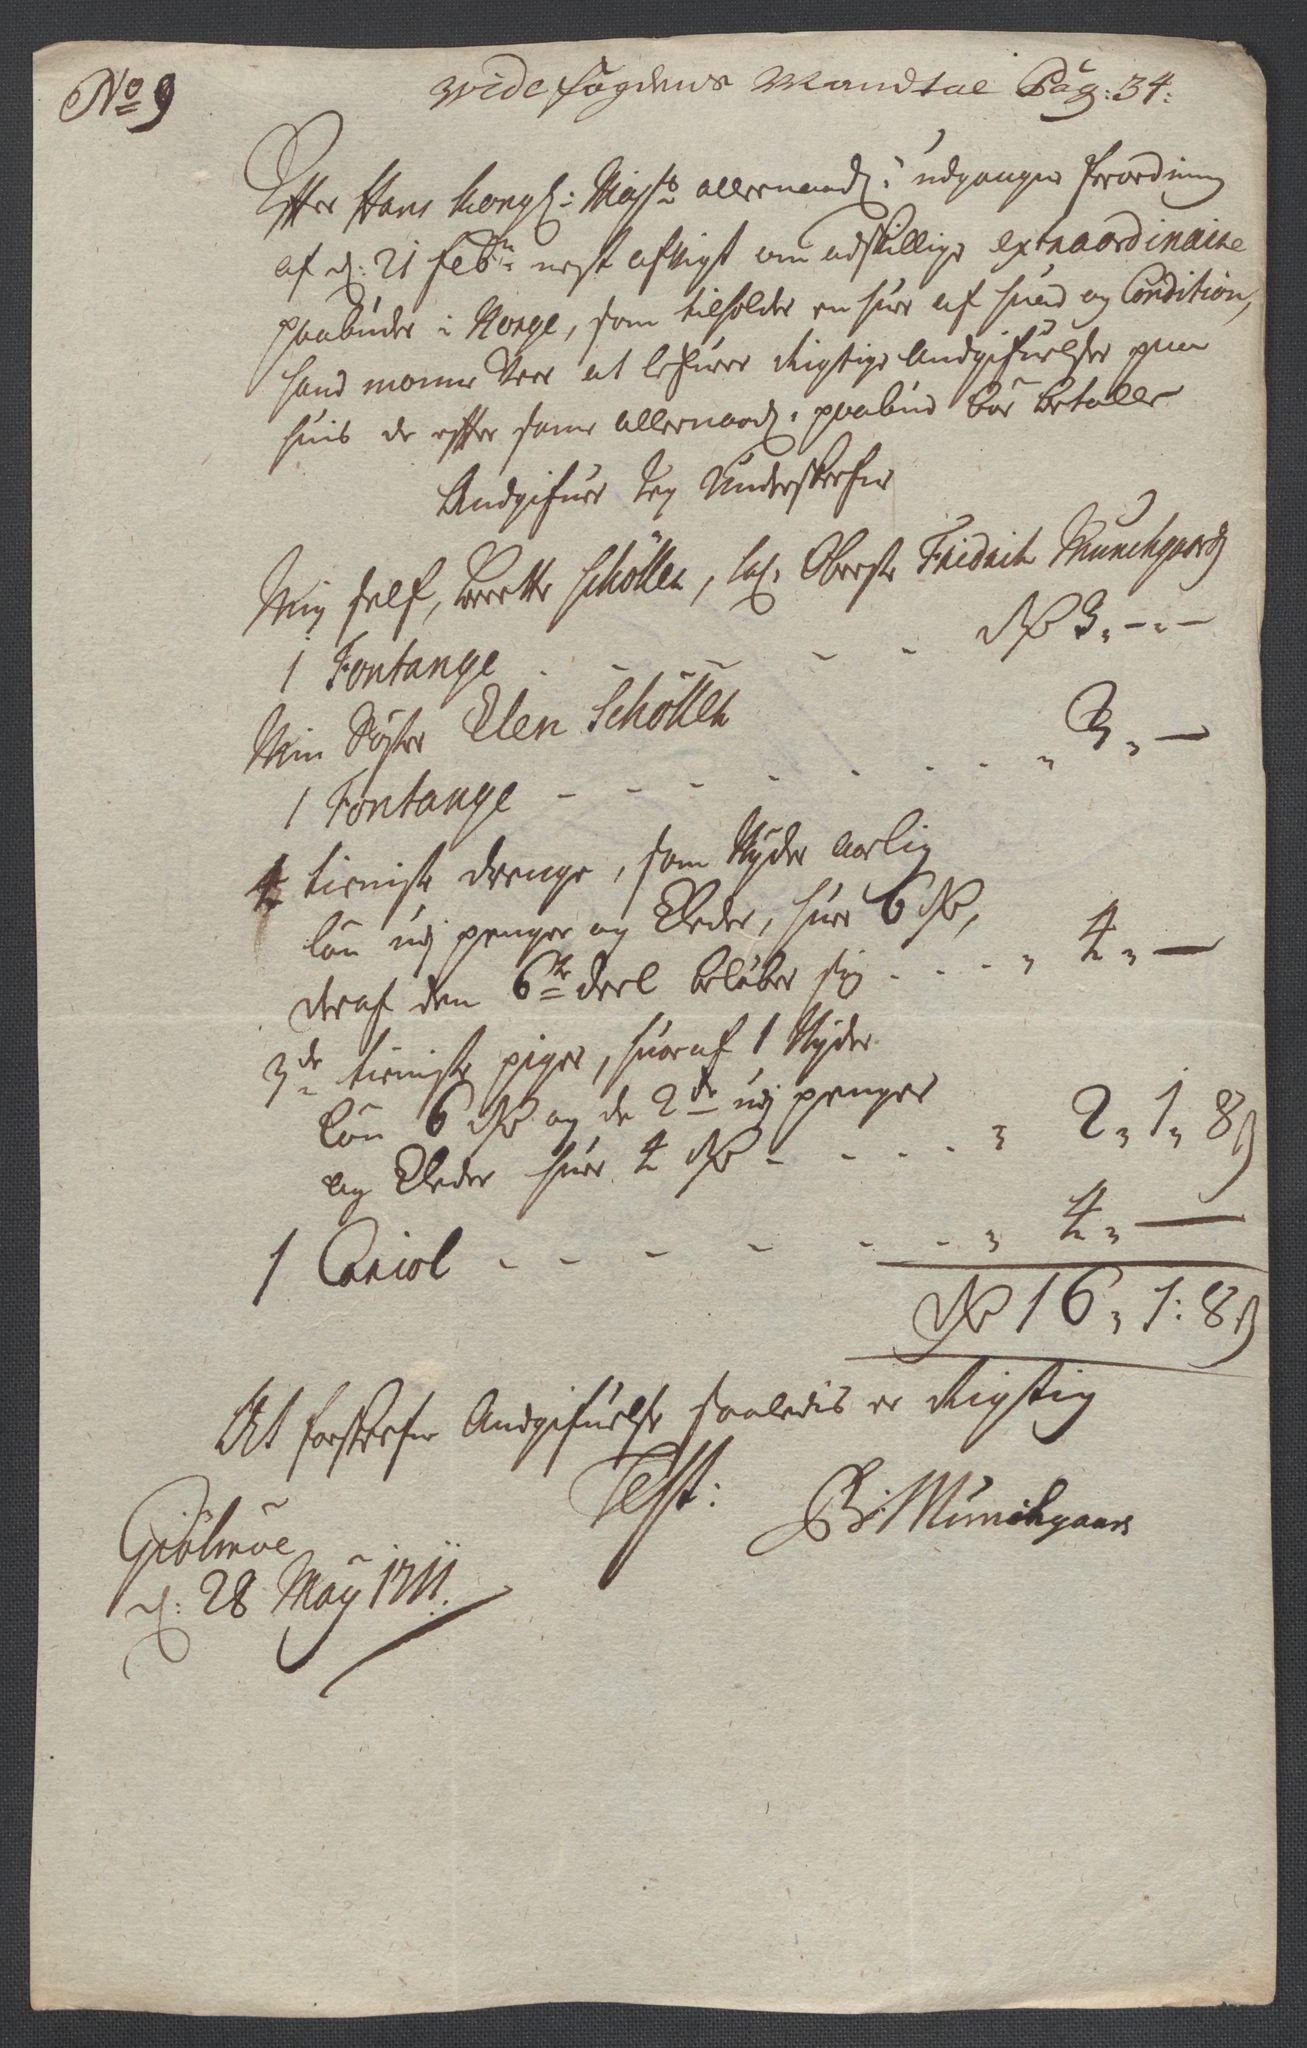 No 9
vide fogdens Mandtal Pag: 34:
Effter Hans Kongl: Mayts allernaad: udgangne forordning
af d: 21 Febr: nest afvigt om adskillige extraordinaire
paabuder i Norge, som tilholder en huer af huad og Condition,
hand monne vere at lefuere Rigtige Andgifuelser paa
huis de effter samme allernaad: paabud bør betalle
Andgifuer Jeg Underskrefne
Mig self, Berette Schöller, Sal: Oberste Fridrich Munchgaards
1 Fontange - - - - - Rdr 3,-,-
Min Søster Elen Schöller
1 Fontange - - - - - - - " 3,-
4 tieniste drenge, som Nyder aarlig
løn udj penger og Kleder, huer 6 Rdr,
deraf den 6te deel beløber sig - - - " 4,-
3de tieniste piger, huoraf 1 Nyder
løn 6 Rdr og de 2de udj penger
og Kleder huer 4 Rdr - - - - " 2, 1, 8 s
1 Cariol - - - - - - " 4,-
Rdr 16, 1: 8 s
At forskrefne Andgifuelse saaledis er Rigtig
Test: B: Munchgaard
Giölmöe
d: 28 May 1711.